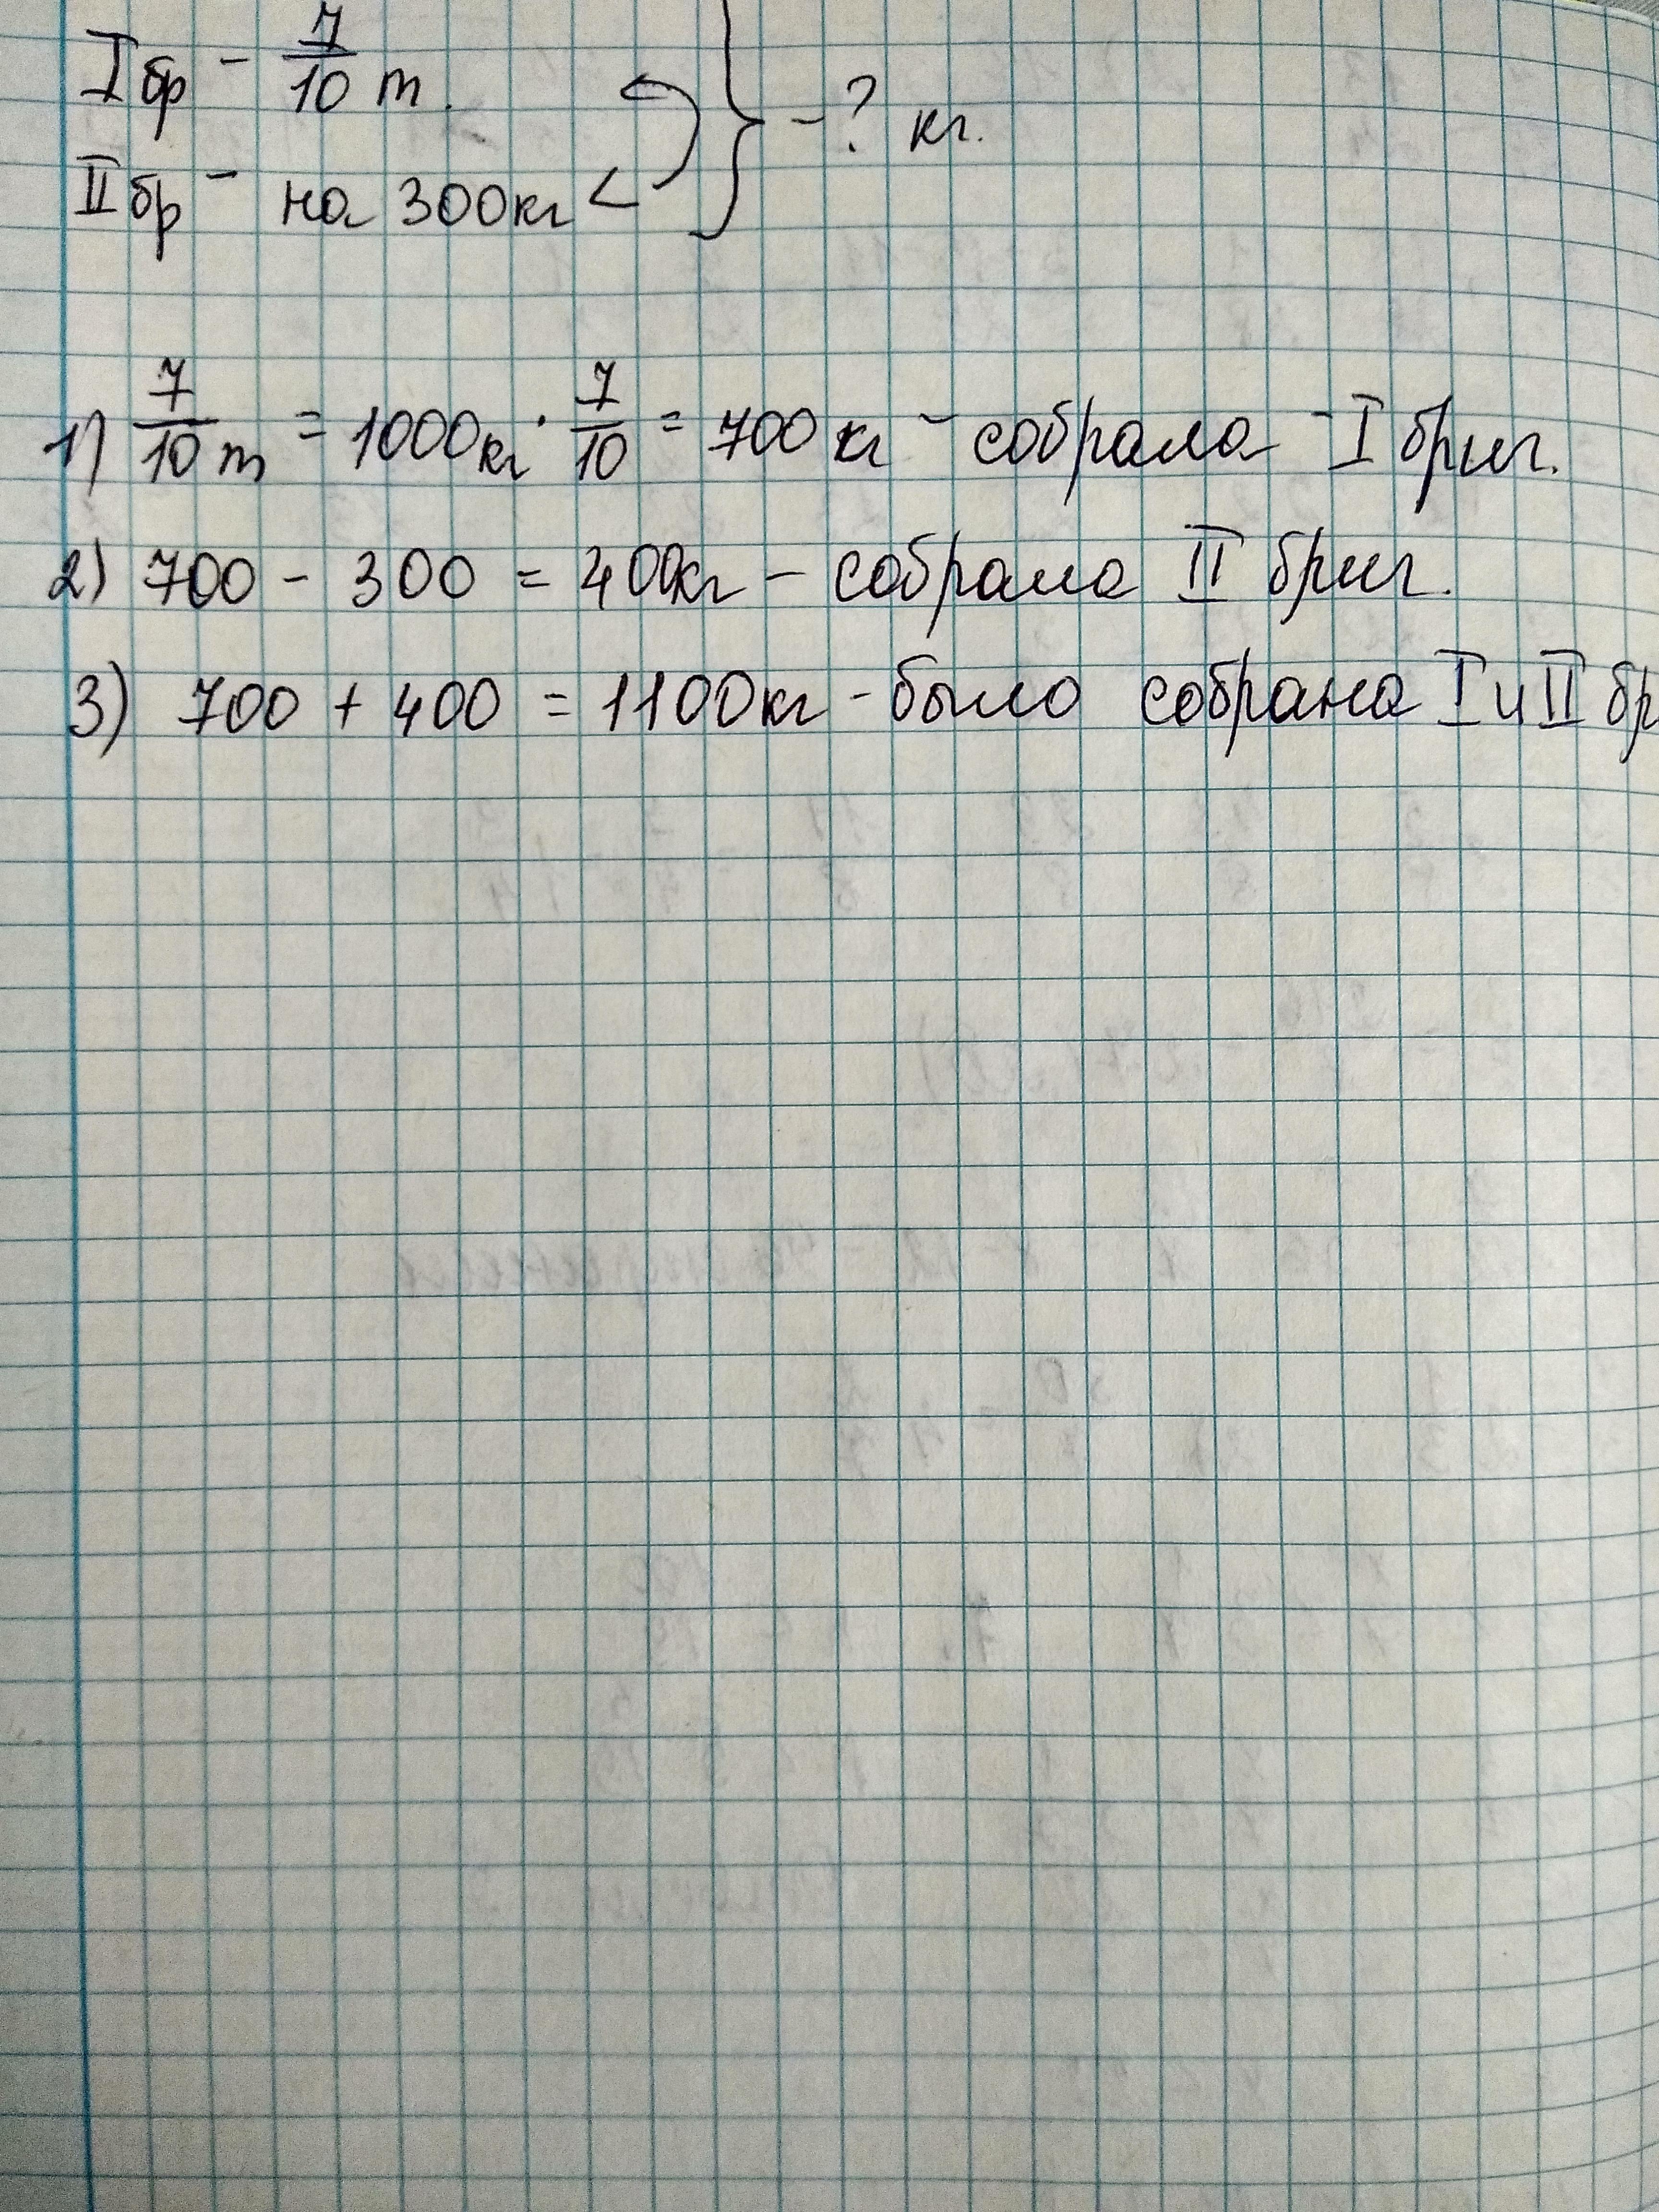 I бр - 7/10 т.
II бр - на 300кг < } - ? кг.
1) 7/10 т = 1000кг · 7/10 = 700 кг - собрала - I бриг.
2) 700 - 300 = 400кг - собрала II бриг.
3) 700 + 400 = 1100кг - было собрано I и II бр